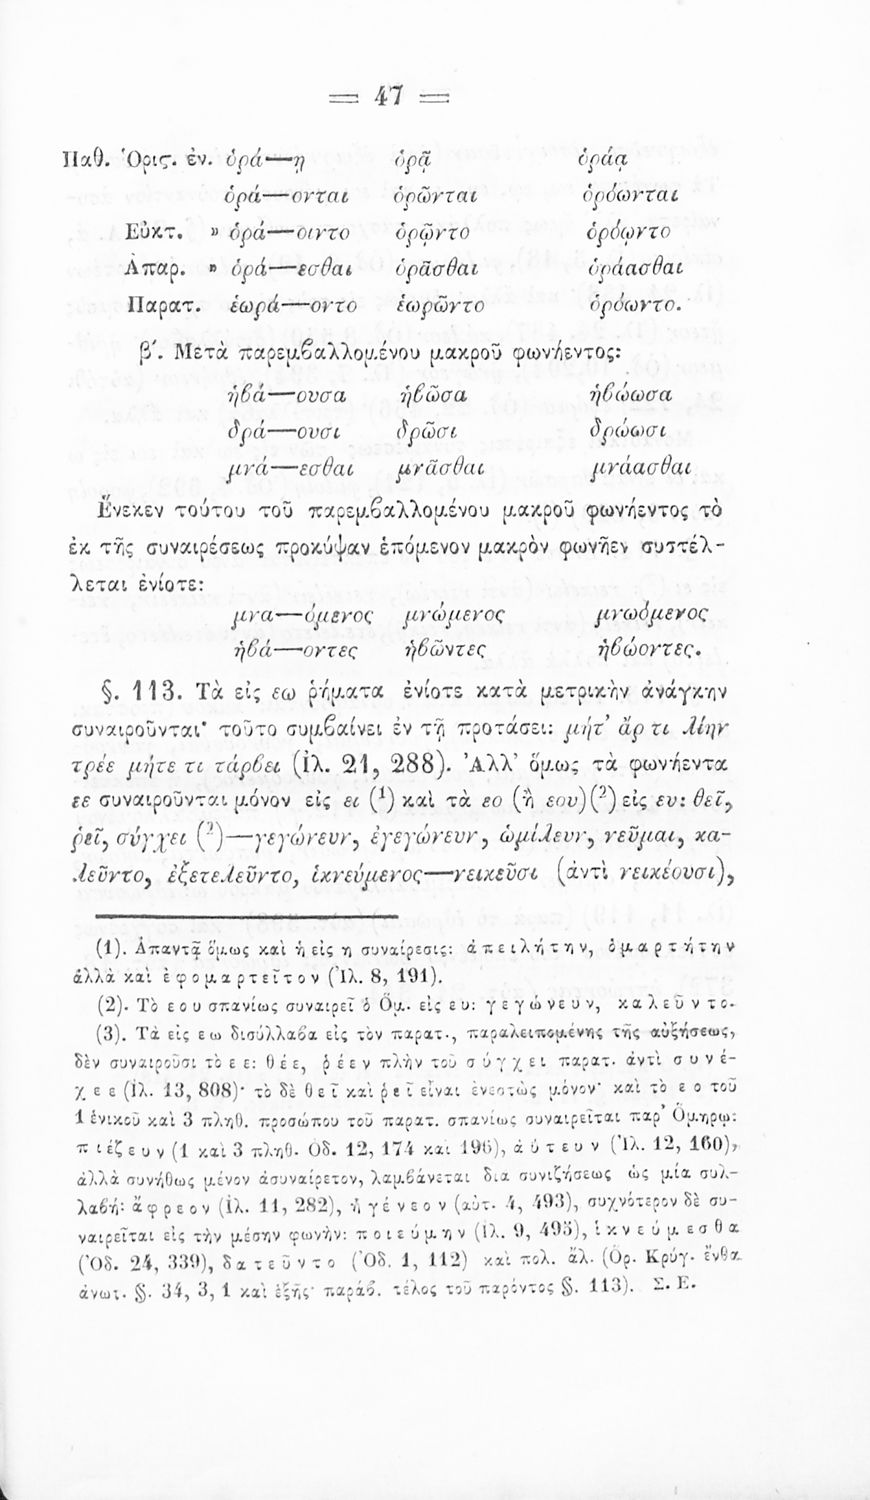 = 47 =
Παθ. Ὁρισ. ἐν. ὁρά—ῃ ὁρᾷ ὁράᾳ
ὁρά—ονται ὁρῶνται ὁρόωνται
Εὐκτ. » ὁρά—οιντο ὁρῷντο ὁρόῳντο
Ἀπαρ. » ὁρά—εσθαι ὁρᾶσθαι ὁράασθαι
Παρατ. ἑωρά—οντο ἑωρῶντο ὁρόωντο.
β'. Μετὰ παρεμβαλλομένου μακροῦ φωνήεντος:
ἡβά—ουσα ἡβῶσα ἡβώωσα
δρά—ουσι δρῶσι δρώωσι
μνά—εσθαι μνᾶσθαι μνάασθαι
Ἕνεκεν τούτου τοῦ παρεμβαλλομένου μακροῦ φωνήεντος τὸ
ἐκ τῆς συναιρέσεως προκύψαν ἑπόμενον μακρὸν φωνῆεν συστέλ-
λεται ἐνίοτε:
μνα—όμενος μνώμενος μνωόμενος
ἡβά—οντες ἡβῶντες ἡβώοντες.
§. 113. Τὰ εἰς εω ῥήματα ἐνίοτε κατὰ μετρικὴν ἀνάγκην
συναιροῦνται· τοῦτο συμβαίνει ἐν τῇ προτάσει: μήτ' ἄρ τι λίην
τρέε μήτε τι τάρβει (Ἰλ. 21, 288). Ἀλλ' ὅμως τὰ φωνήεντα
εε συναιροῦνται μόνον εἰς ει (¹) καὶ τὰ εο (ἢ εου)(²) εἰς ευ: θεῖ,
ῥεῖ, σύγχει (³)—γεγώνευν, ἐγεγώνευν, ὡμίλευν, νεῦμαι, κα-
λεῦντο, ἐξετελεῦντο, ἱκνεύμενος—νεικεῦσι (ἀντὶ νεικέουσι),
(1). Ἀπαντᾷ ὅμως καὶ ἡ εἰς η συναίρεσις: ἀπειλήτην, ὁμαρτήτην
ἀλλὰ καὶ ἐφομαρτεῖτον (Ἰλ. 8, 191).
(2). Τὸ εου σπανίως συναιρεῖ ὁ Ὅμ. εἰς ευ: γεγώνευν, καλεῦντο.
(3). Τὰ εἰς εω δισύλλαβα εἰς τὸν παρατ., παραλειπομένης τῆς αὐξήσεως,
δὲν συναιροῦσι τὸ εε: θέε, ῥέεν πλὴν τοῦ σύγχει παρατ. ἀντὶ συνέ-
χεε (Ἰλ. 13, 808)· τὸ δὲ θεῖ καὶ ῥεῖ εἶναι ἐνεστὼς μόνον· καὶ τὸ εο τοῦ
1 ἑνικοῦ καὶ 3 πληθ. προσώπου τοῦ παρατ. σπανίως συναιρεῖται παρ' Ὁμήρῳ:
πιέζευν (1 καὶ 3 πληθ. Ὀδ. 12, 174 καὶ 196), ἀύτευν (Ἰλ. 12, 160),
ἀλλὰ συνήθως μένον ἀσυναίρετον, λαμβάνεται διὰ συνιζήσεως ὡς μία συλ-
λαβή: ἄφρεον (Ἰλ. 11, 282), ἠγίνεον (αὐτ. 4, 493), συχνότερον δὲ συ-
ναιρεῖται εἰς τὴν μέσην φωνὴν: ποιεύμην (Ἰλ. 9, 495), ἱκνεύμεσθα
(Ὀδ. 24, 339), δατεῦντο (Ὀδ. 1, 112) καὶ πολ. ἄλ. (Ὅρ. Κρύγ. ἔνθα
ἀνωτ. §. 34, 3, 1 καὶ ἑξῆς· παράβ. τέλος τοῦ παρόντος §. 113). Σ. Ε.